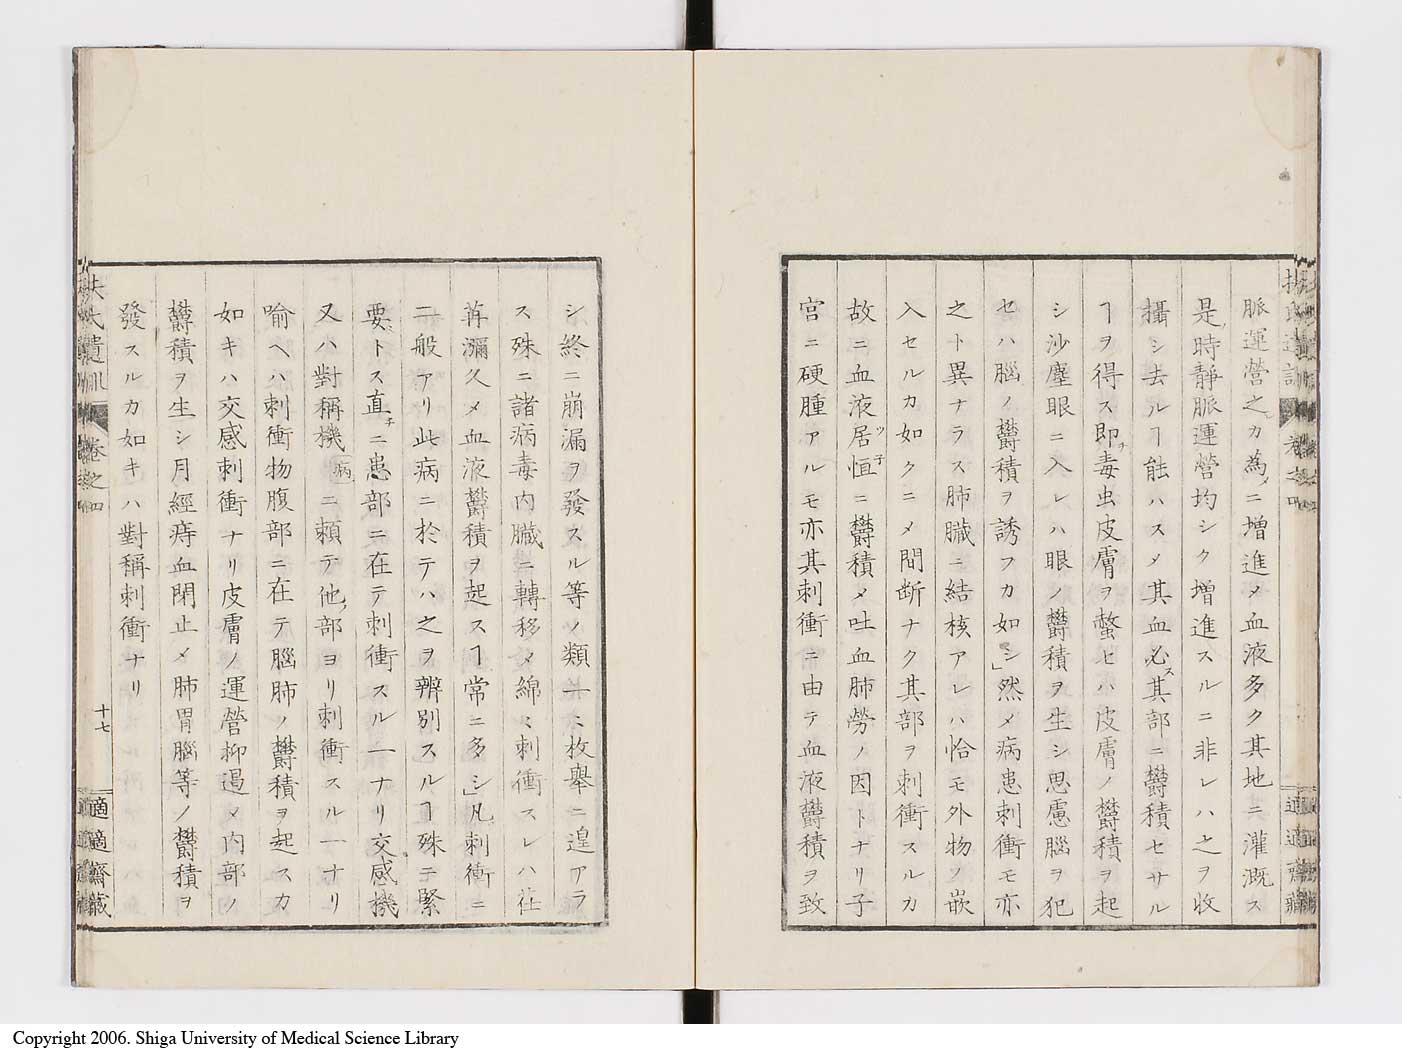 脈運營之カ為ニ増進乄血液多ク其地ニ灌漑ス
是時靜脈運營均シク増進スルニ非レハ之ヲ收
攝シ去ルヿ能ハス乄其血必其部ニ欝積セサル
ヿヲ得ス即毒虫皮膚ヲ螫セハ皮膚ノ欝積ヲ起
シ沙塵眼ニ入レハ眼ノ欝積ヲ生シ思慮腦ヲ犯
セハ腦ノ欝積ヲ誘フカ如シ」然乄病患刺衝モ亦
之ト異ナラス肺臓ニ結核アレハ恰モ外物ノ嵌
入セルカ如クニ乄間断ナク其部ヲ刺衝スルカ
故ニ血液居恒ニ欝積乄吐血肺勞ノ因トナリ子
宮ニ硬腫アルモ亦其刺衝ニ由テ血液欝積ヲ致
シ終ニ崩漏ヲ發スル等ノ類一ミ枚擧ニ遑アラ
ス殊ニ諸病毒内臓ニ轉移乄綿ミ刺衝スレハ荏
苒瀰久乄血液欝積ヲ起スヿ常ニ多シ」凡刺衝ニ
二般アリ此病ニ於テハ之ヲ辨別スルヿ殊ニ緊
要トス直ニ患部ニ在テ刺衝スル一ナリ交感機
又ハ對稱機病ニ頼テ他部ヨリ刺衝スル一ナリ
喻ヘハ刺衝物腹部ニ在テ腦肺ノ欝積ヲ起スカ
如キハ交感刺衝ナリ皮膚ノ運營抑遏乄内部ノ
欝積ヲ生シ月經痔血閉止乄肺胃腦等ノ欝積ヲ
發スルカ如キハ對稱刺衝ナリ
扶氏遺訓 卷之四
十七
適適齋藏